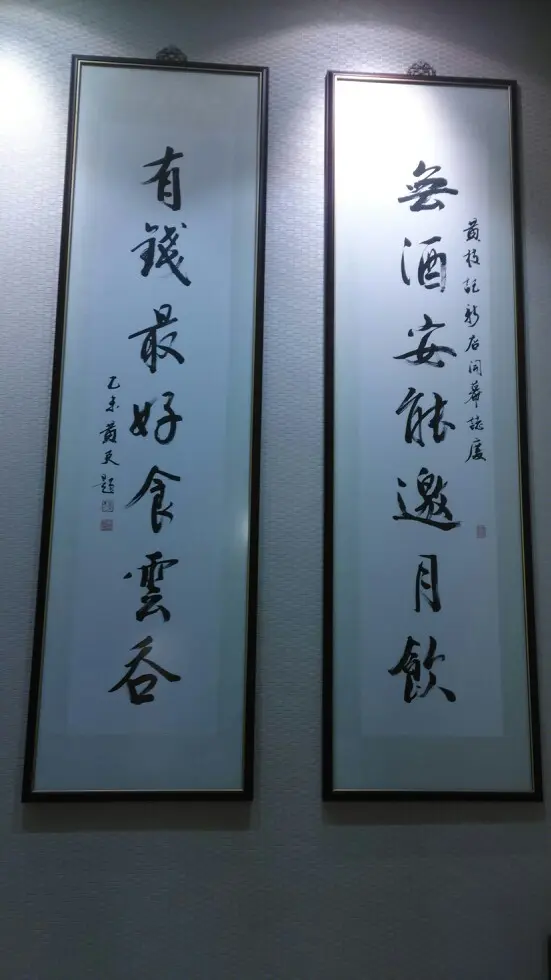 無酒安能邀月飲
黃枝記新店開幕誌慶
有錢最好食雲吞
乙未黃天題